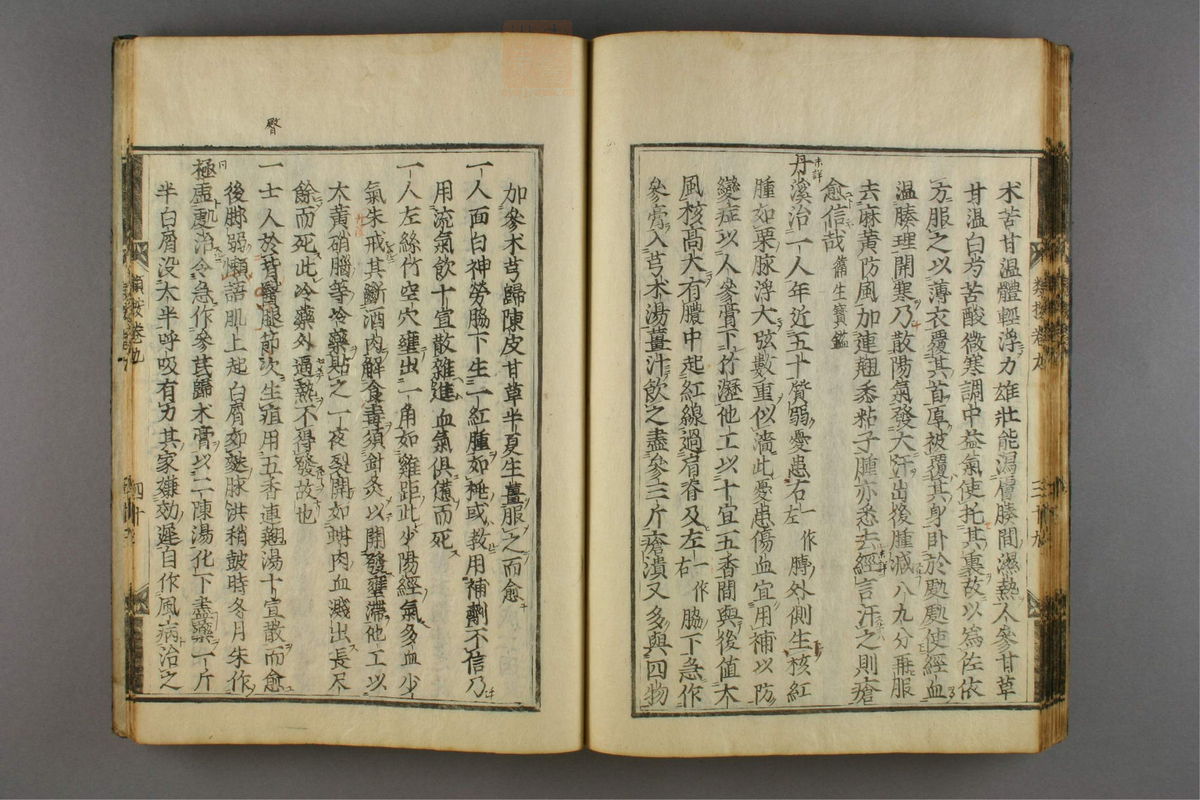 朮苦甘溫體輕浮力雄壯能瀉膚腠間濕熱人參甘草
甘溫白芍苦酸微寒調中益氣使托其裏故以爲佐依
方服之以薄衣覆其首厚被覆其身臥於處使經血
溫腠理開寒乃散陽氣發大汗出後腫減八九分再服
去麻黃防風加連翹黍粘子腫亦悉去經言汗之則瘡
愈信哉 衛生寶鑑
丹溪治一人年近五十質弱憂患右一作左膊外側生核紅
腫如栗脉浮大弦數重似濇此憂患傷血宜用補以防
變症以人參膏下竹瀝他工以十宣五香間與後值木
風核高大有膿中起紅線過肩脊及左一作右脇下急作
參膏入芎朮湯薑汁飲之盡參三斤瘡潰又多與四物
加參朮芎歸陳皮甘草半夏生薑服之而愈
一人面白神勞脇下生一紅腫如桃或敎用補劑不信乃
用流氣飮十宣散雜進血氣俱憊而死
一人左絲竹空穴壅出一角如雞距此少陽經氣多血少
氣朱戒其斷酒肉解食毒須針灸以開發壅滯他工以
大黃硝腦等冷藥貼之一夜裂開如蚶肉血濺出長尺
餘而死此冷藥外逼熱不得發故也
一士人於背臀腿節次生疽用五香連翹湯十宣散而愈
後脚弱懶語肌上起白屑如麩脉洪稍鼓時冬月朱作
極虛處治令急作參芪歸朮膏以二陳湯化下盡藥一斤
半白屑没太半呼吸有力其家嫌効遲自作風病治之
臀
類按卷九
四十
類按卷九
三十九